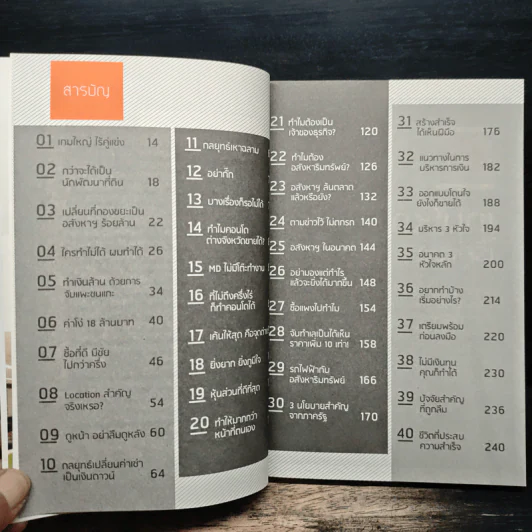 สารบัญ
01 เกมใหญ่ ไร้คู่แข่ง 14
02 กว่าจะได้เป็น
นักพัฒนาที่ดิน 18
03 เปลี่ยนที่กองขยะเป็น
อสังหาฯ ร้อยล้าน 22
04 ใครทำไม่ได้ ผมทำได้ 26
05 ทำเงินล้าน ด้วยการ
จับแพะชนแกะ 34
06 ค่าโง่ 18 ล้านบาท 40
07 ซื้อที่ดี มีชัย
ไปกว่าครึ่ง 46
08 Location สำคัญ
จริงเหรอ? 54
09 ดูหน้า อย่าลืมดูหลัง 60
10 กลยุทธ์เปลี่ยนค่าเช่า
เป็นเงินดาวน์ 64
11 กลยุทธ์เหาฉลาม
12 อย่ากั๊ก
13 บางเรื่องก็รอไม่ได้
14 ทำไมคอนโด
ต่างจังหวัดขายได้?
15 MD ไม่มีโต๊ะทำงาน
16 ที่ไม่ถึงครึ่งไร่
ก็ทำคอนโดได้
17 เค้นให้สุด คือจุดต่าง
18 ยิ่งยาก ยิ่งภูมิใจ
19 หุ้นส่วนที่ดีที่สุด
20 ทำให้มากกว่า
หน้าที่ตนเอง
21 ทำไมต้องเป็น
เจ้าของธุรกิจ? 120
22 ทำไมต้อง
อสังหาริมทรัพย์? 126
23 อสังหาฯ ล้นตลาด
แล้วหรือยัง? 132
24 ตามข่าวไว้ ไม่ตกรถ 140
25 อสังหาฯ ในอนาคต 144
26 อย่ามองแต่กำไร
แล้วจะยิ่งได้มากขึ้น 148
27 ซื้อแพงไปทำไม 154
28 จับทำเลเป็นได้เห็น
ราคาเพิ่ม 10 เท่า! 158
29 รถไฟฟ้ากับ
อสังหาริมทรัพย์ 166
30 3 นโยบายสำคัญ
จากภาครัฐ 170
31 สร้างสำเร็จ
ได้เห็นฝีมือ 176
32 แนวทางในการ
บริหารการเงิน 182
33 ออกแบบโดนใจ
ยังไงก็ขายได้ 188
34 บริหาร 3 หัวใจ 194
35 อนาคต 3
หัวใจหลัก 200
36 อยากทำบ้าง
เริ่มอย่างไร? 214
37 เตรียมพร้อม
ก่อนลงมือ 220
38 ไม่มีเงินทุน
คุณก็ทำได้ 230
39 ปัจจัยสำคัญ
ที่ถูกลืม 236
40 ชีวิตที่ประสบ
ความสำเร็จ 240